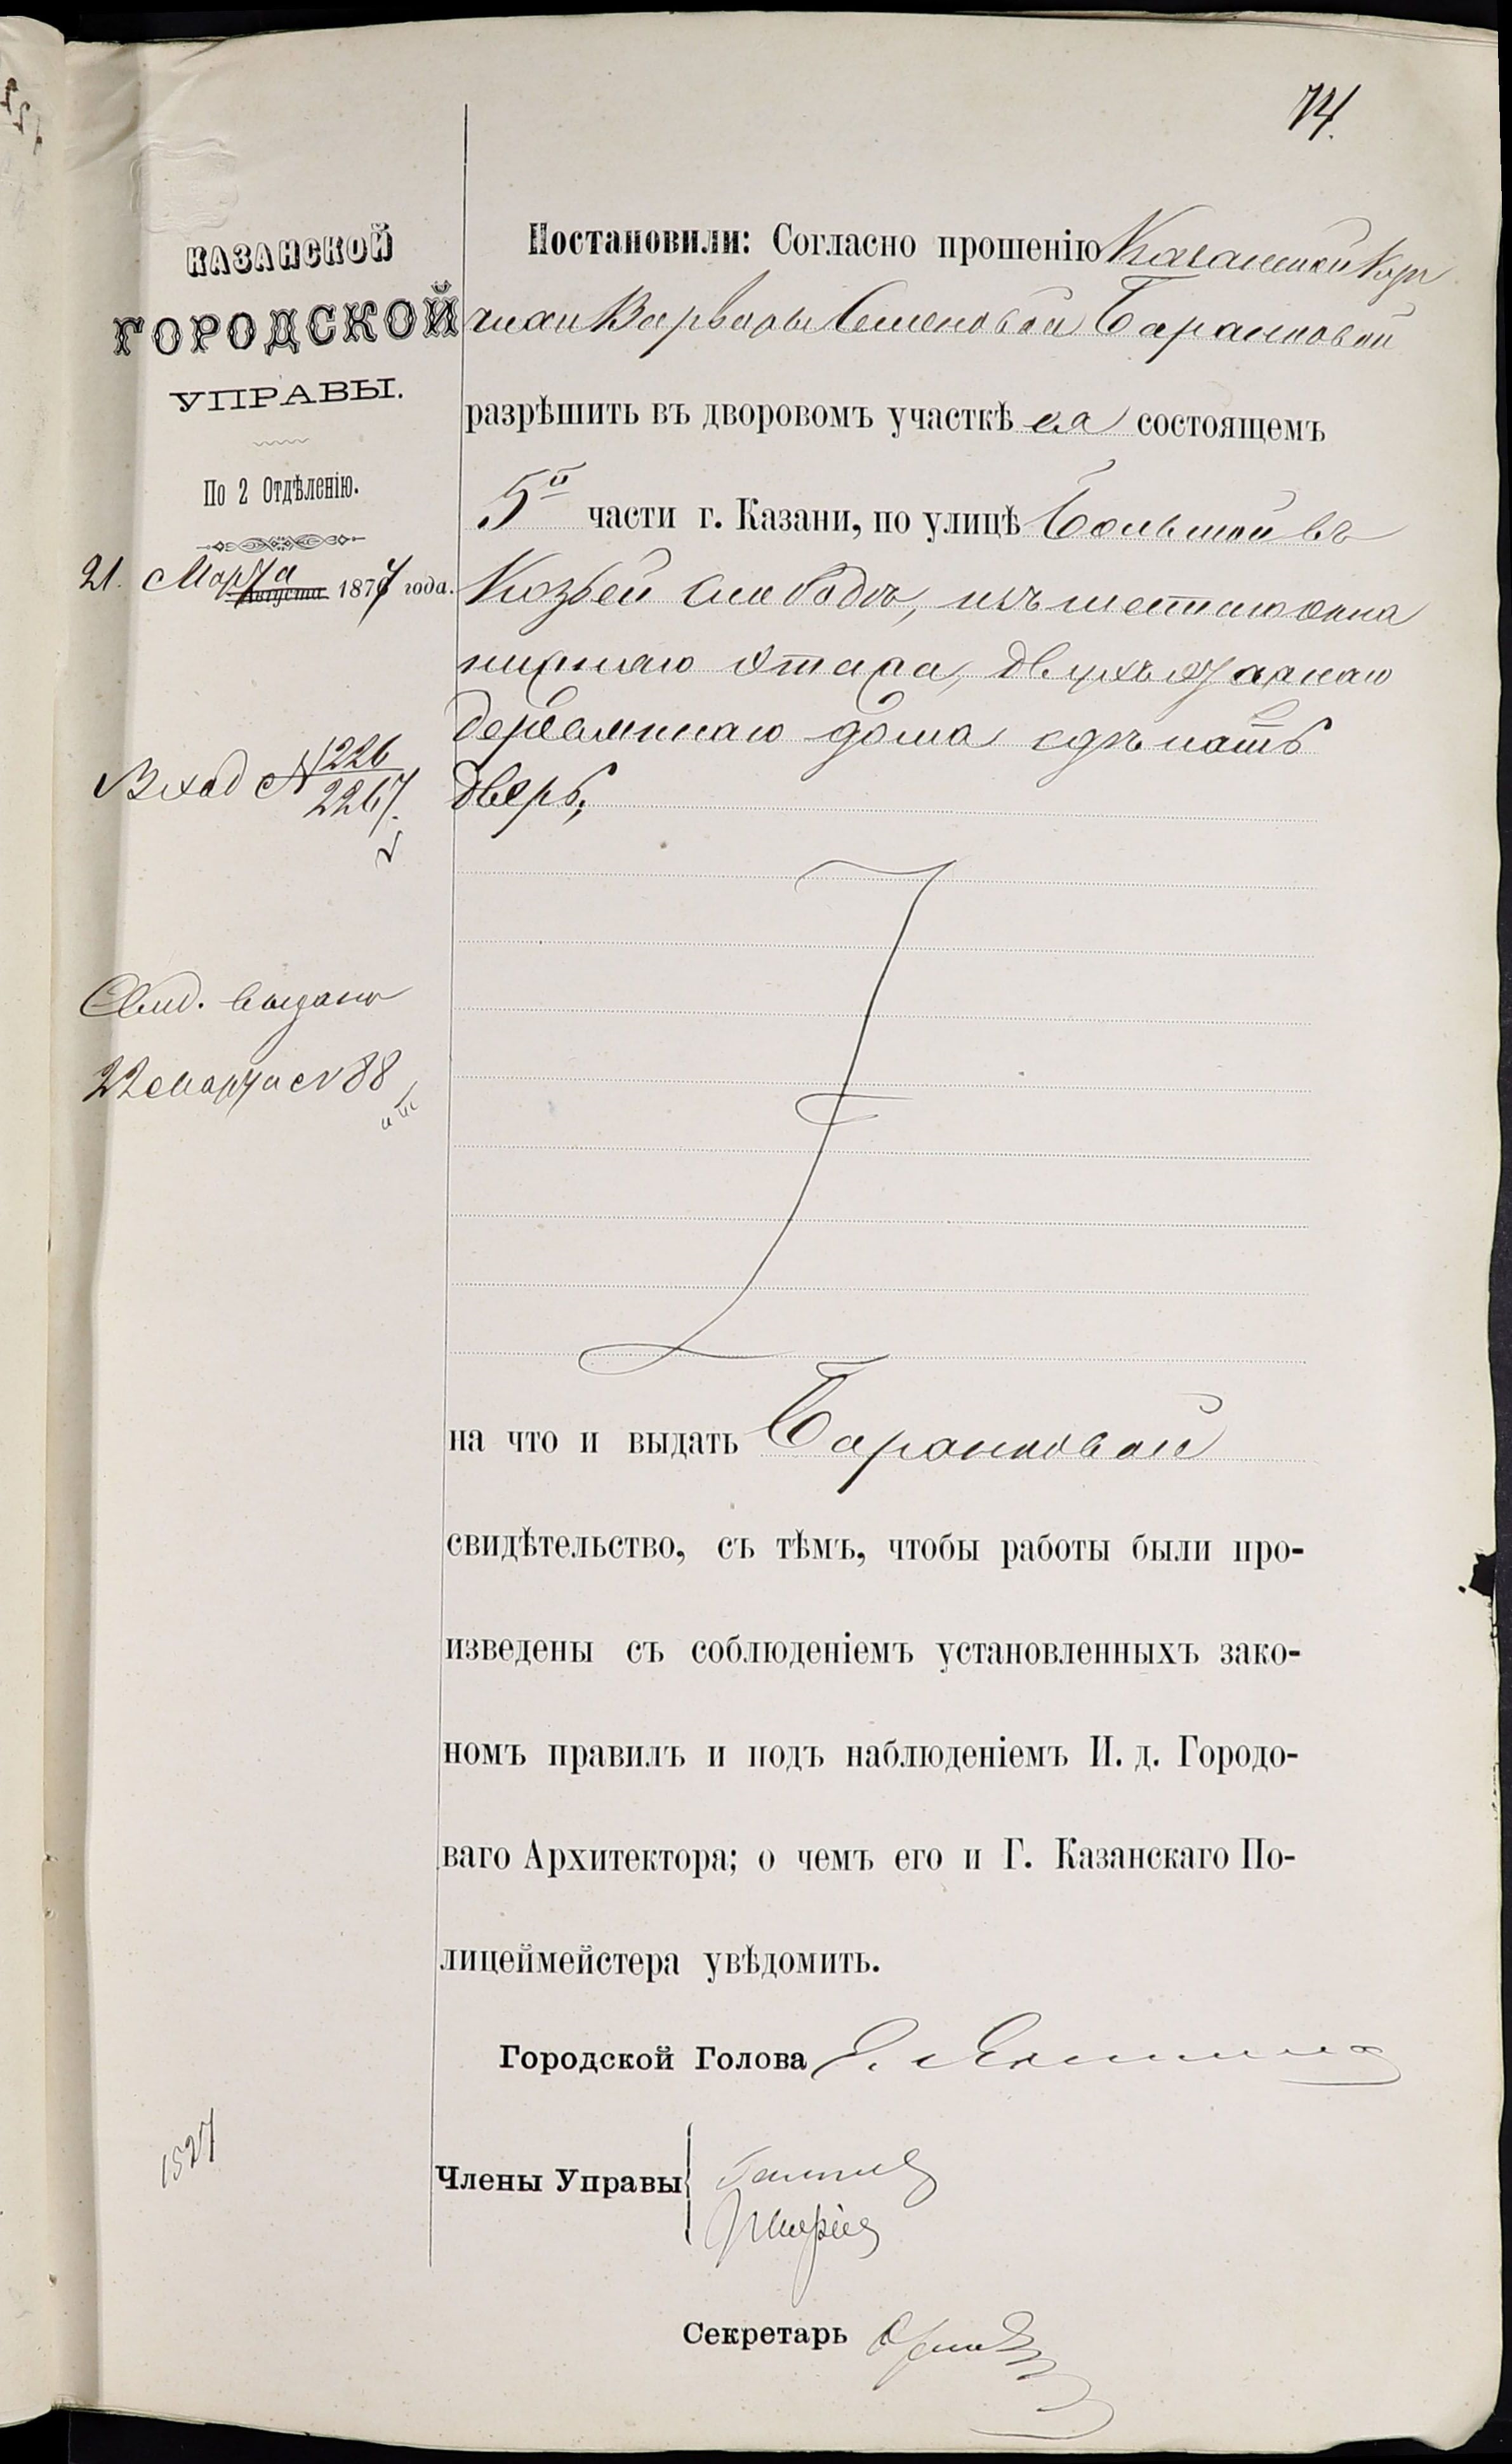 74.
КАЗАНСКОЙ
ГОРОДСКОЙ
УПРАВЫ.
По 2 Отдѣленію.
21. Марта Августа 1877 года.
Вход № 226
2267.
Свид. выдано
22 марта № 88
1527
Постановили: Согласно прошенію Казанской
Варвары Семеновой Барановой
разрѣшить въ дворовомъ участкѣ ея состоящемъ
5й части г. Казани, по улицѣ Большой въ
Козьей слободѣ, изъ шестаго окна
нижняго этажа, двухъэтажнаго
деревяннаго дома сдѣлать
дверь;
на что и выдать Барановой
свидѣтельство, съ тѣмъ, чтобы работы были про-
изведены съ соблюденіемъ установленныхъ зако-
номъ правилъ и подъ наблюденіемъ И. д. Городо-
ваго Архитектора; о чемъ его и Г. Казанскаго По-
лицеймейстера увѣдомить.
Городской Голова
Члены Управы
Секретарь